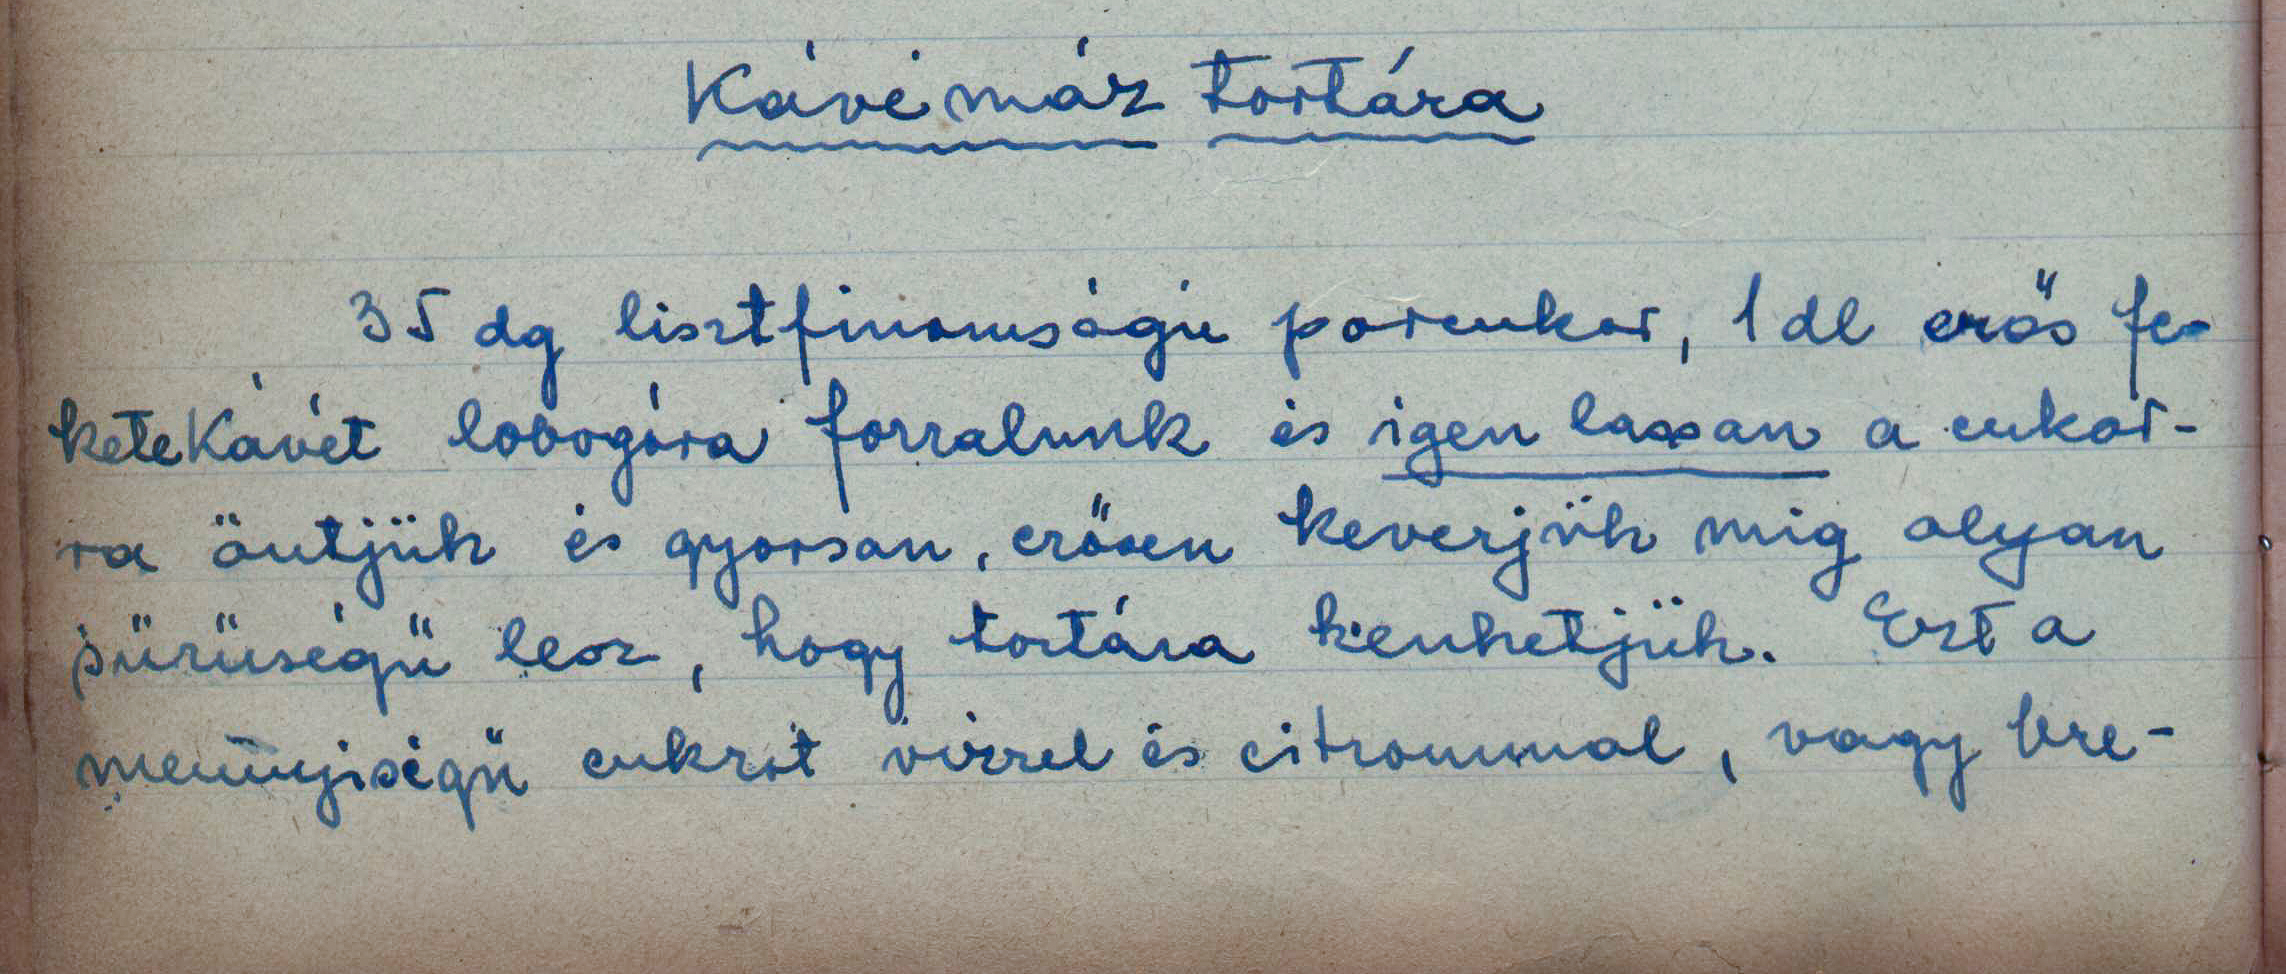 Kávémáz tortára
35 dg lisztfinomságú porcukor, 1 dl erős fe-
ketekávét lobogóra forralunk és igen lassan a cukor-
ra öntjük és gyorsan, erősen keverjük mig olyan
sűrűségű lesz, hogy tortára kenhetjük. Ezt a
mennyiségű cukrot vízzel és citrommal, vagy kre-